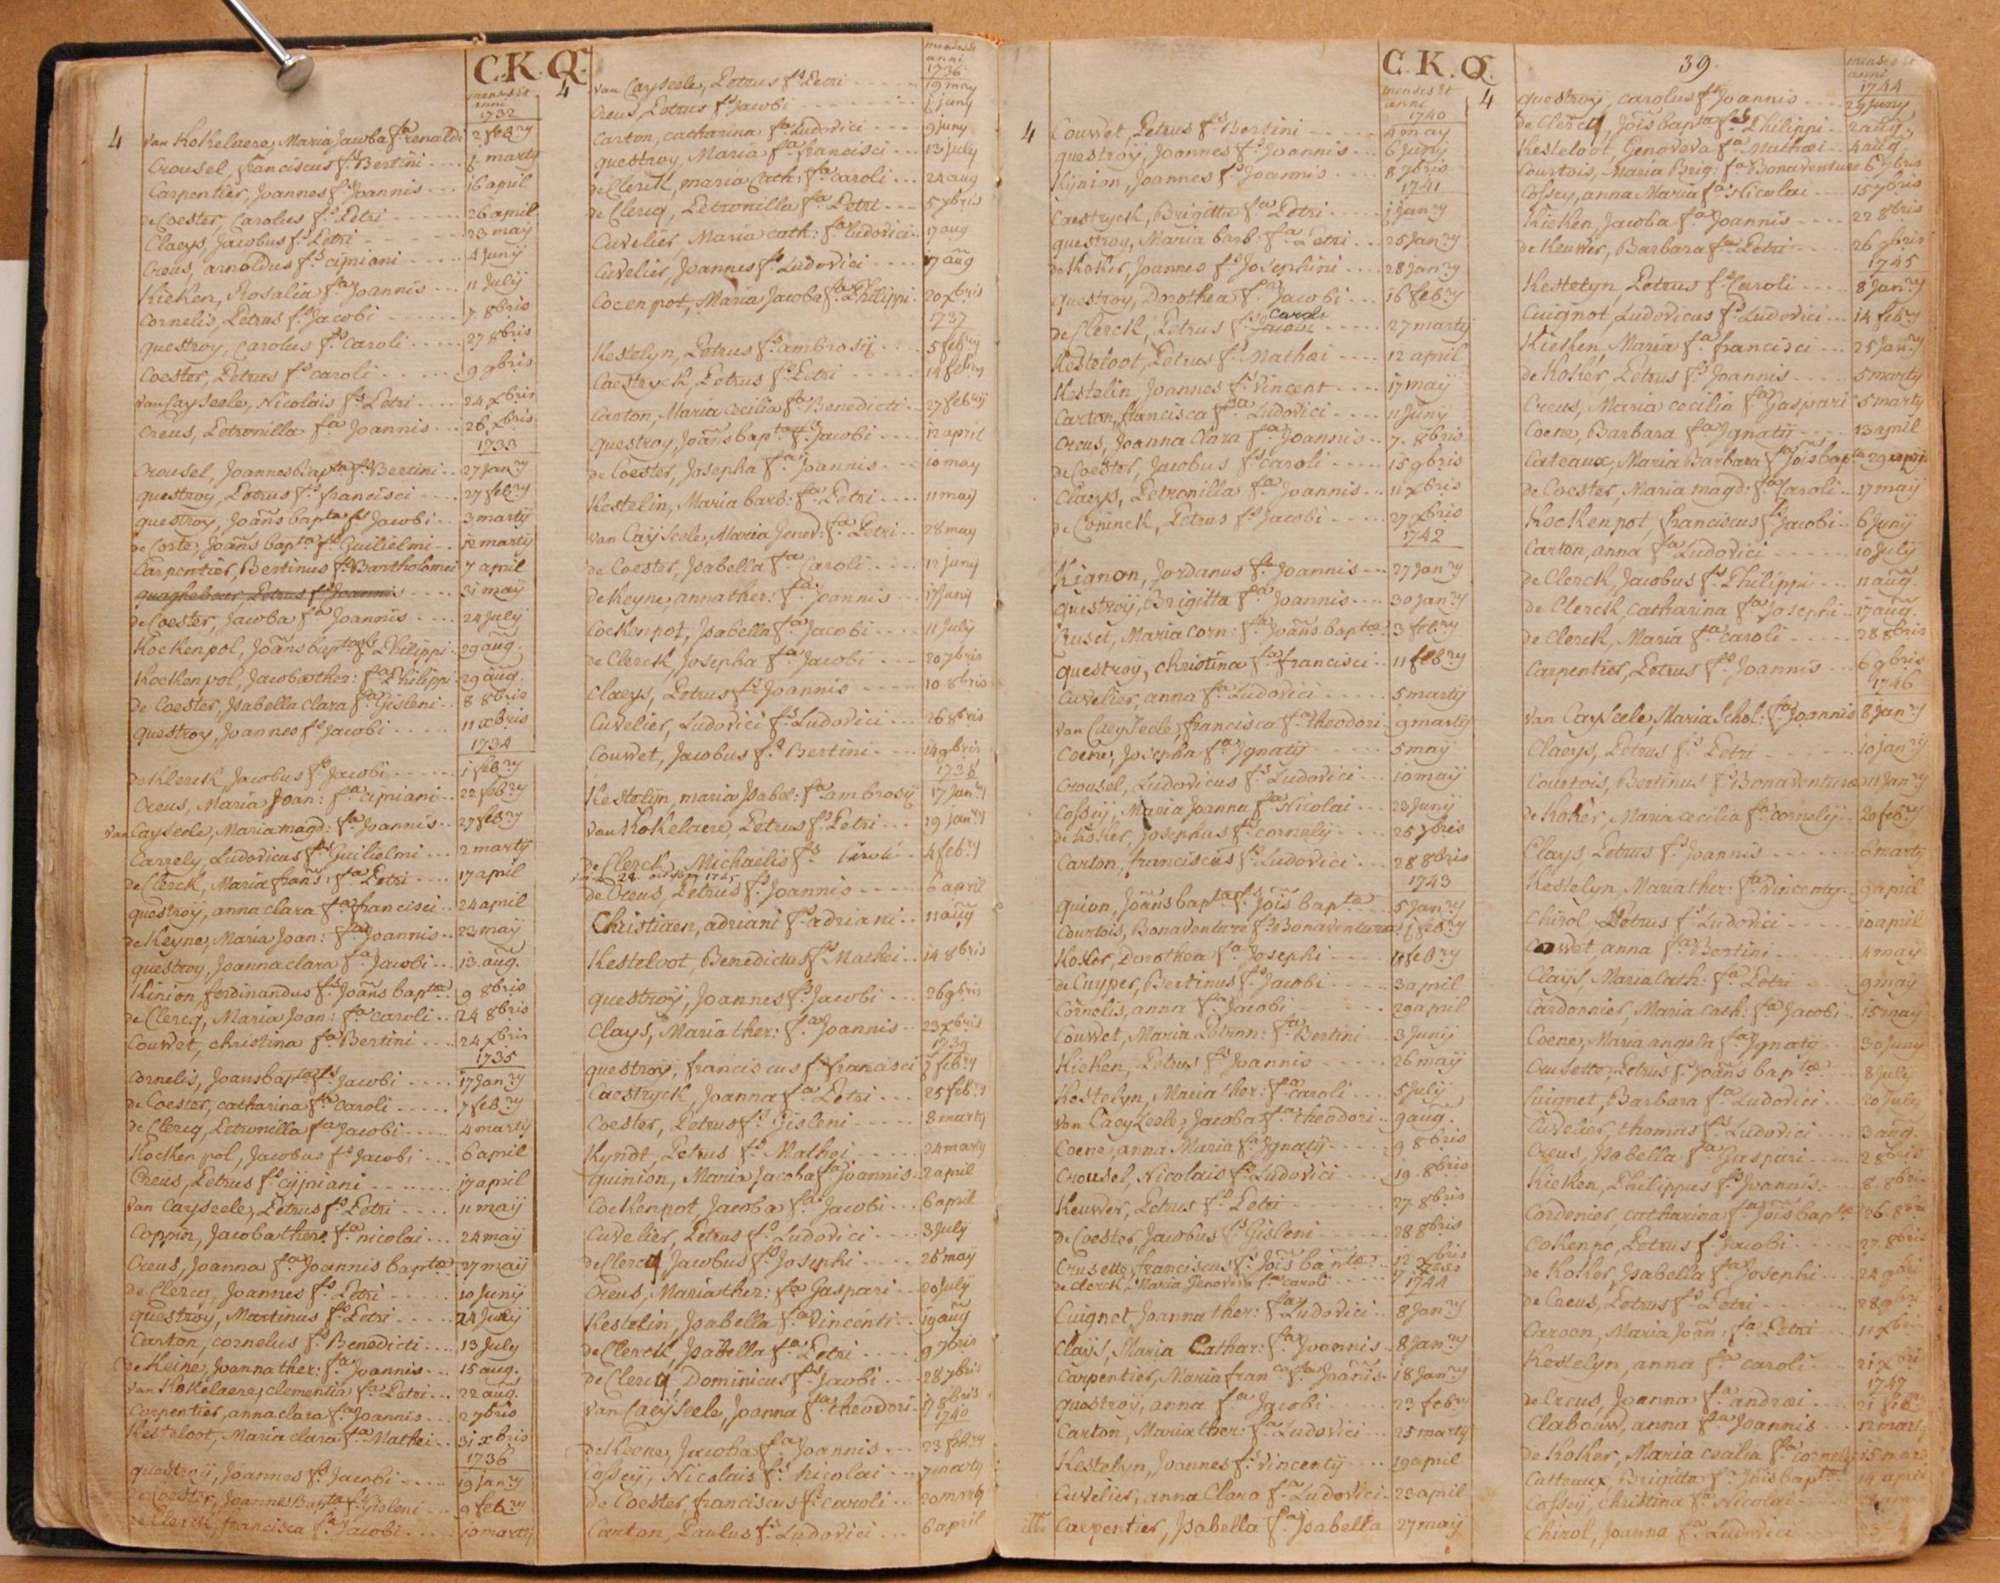 C.K.Q.
menses et
anni
1732
4
van Kokelaere, Maria Jacoba fa renaldi 2 febry
Crousel, franciscus fs Bertini 6 martij
Carpentier, Joannes fs Joannis 16 april
de Coester, Carolus fs Petri 26 april
Claeys, Jacobus fs Petri 23 maij
Creus, arnoldus fs cipriani 4 Junij
Kieken, Rosalia fa Joannis 11 Julij
Cornelis, Petrus fs Jacobi 7 8bris
questroy, Carolus fs Caroli 27 8bris
Coester, Petrus fs caroli 9 9bris
van CaySeele, Nicolais fs Petri 24 xbris
Creus, Petronilla fa Joannis 26 xbris
1733
Crousel, Joannes Bapta fs Bertini 27 Janry
questroy, Petrus fs francisci 27 febry
questroy, Joañs bapta fs Jacobi 3 martij
de Corte, Joañs bapta fs Guilielmi 12 martij
Carpentier, Bertinus fs Bartholomei 7 april
quaghebeur, Petrus fs Joannis 21 maij
de Coester, Jacoba fa Joannis 24 Julij
Kockenpol, Joañs bapta fs Philippi 29 aug.
Kockenpol, Jacoba ther: fa Philippi 29 aug.
de Coester, Isabella clara fa Gisleni 8 8bris
questroy, Joannes fs Jacobi 11 xbris
1734
de Klerck, Jacobus fs Jacobi 1 febry
Creus, Maria Joan: fa cipriani 22 febry
van CaySeele, Maria magd: fa Joannis 27 febry
Carrely, Ludovicus fs Guilielmi 2 martij
de Clerck, Maria frañs: fa Petri 17 april
questroy, anna clara fa francisci 24 april
de Keyne, Maria Joan: fa Joannis 23 maij
questroy, Joanna clara fa Jacobi 13 aug.
Kinion, ferdinandus fs Joañs bapta 9 8bris
de Clercq, Maria Joan: fa caroli 24 8bris
Couwet, christina fa Bertini 24 xbris
1735
Cornelis, Joans bapta fs Jacobi 17 Janry
de Coester, catharina fa caroli 7 febry
de Clercq, Petronilla fa Jacobi 4 martij
Kocken pol, Jacobus fs Jacobi 6 april
Creus, Petrus fs cijpriani 17 april
van CaySeele, Petrus fs Petri 11 maij
Coppin, Jacoba there fa nicolai 24 maij
Creus, Joanna fa Joannis bapta 27 maij
de Clercq, Joannes fs Petri 10 Junij
questroy, Martinus fs Petri 24 Junij
Carton, cornelus fs Benedicti 13 July
de Keine, Joanna ther: fa Joannis 15 aug.
van Kokelaere, clementia fa Petri 22 aug.
Carpentier, anna clara fa Joannis 2 7bris
Kesteloot, Maria clara fa Mathei 31 xbris
1736
questroij, Joannes fs Jacobi 19 Janry
de Coester, Joannes Bapta fs Gisleni 9 febry
de Clerck, francisca fa Jacobi 10 martij
menses et
anni
1736
4
van CaySeele, Petrus fs Petri 19 may
Creus, Petrus fs Jacobi 6 junij
Carton, catharina fa Ludovici 9 juny
questroy, Maria fa francisci 13 july
de Clerck, maria Cath: fa caroli 24 aug
de Clercq, Petronilla fa Petri 5 7bris
Cuvelier Maria cath: fa Ludovici 17 aug
Cuvelier, Joannes fs Ludovici 17 aug
Cocenpot, Maria Jacoba fa Philippi 20 xbris
1737
Kestelyn, Petrus fs ambrosij 5 febry
Caestryck, Petrus fs Petri 14 febry
Carton, Maria Cecilia fa Benedicti 27 febry
questroy, Joañs bapta fs Jacobi 12 april
de Coester, Josepha fa Joannis 10 may
Kestelin, Maria barb: fa Petri 11 may
van CaySeele, Maria Jenov: fa Petri 28 may
de Coester, Isabella fa Caroli 12 junij
de Keyne, anna ther: fa Joannis 17 juny
Cockenpot, Isabella fa Jacobi 11 July
de Clerck, Josepha fa Jacobi 20 7bris
Claeys, Petrus fs Joannis 10 8bris
Cuvelier, Ludovici fs Ludovici 26 8bris
Couwet, Jacobus fs Bertini 14 9bris
1738
Kestelyn, maria Isabel: fa ambrosij 17 Janry
van Kokelaere, Petrus fs Petri 29 Janry
de Clerck, Michaelis fs Caroli 4 febry
de Creus, Petrus fs Joannis 6 april
Christiaen, adriani fs adriani 11 aug
Kesteloot, Benedictus fs Mathei 14 8bris
questroij, Joannes fs Jacobi 26 9bris
Clays, Maria ther: fa Joannis 23 xbris
1739
questroy, franciscus fs francisci 7 febry
Caestryck, Joanna fa Petri 25 febry
Coester, Petrus fs Gisleni 8 marty
Kyndt, Petrus fs Mathei 24 marty
quinion, Maria Jacoba fa Joannis 2 april
Cockenpot, Jacoba fa Jacobi 6 april
Cuvelier, Petrus fs Ludovici 3 July
de Clercq Jacobus fs Josephi 25 may
Creus, Maria ther: fa Gaspari 20 july
Kestelin, Isabella fa Vincenti 19 aug
de Clerck, Isabella fa Petri 9 7bris
de Clercq, Dominicus fs Jacobi 28 7bris
van CaeySeele, Joanna fa theodori 17 8bris
1740
de Keone, Jacoba fa Joannis 23 febry
Cossey, Nicolais fs Nicolai 7 marty
de Coester, franciscus fs caroli 20 marty
Carton, Paulus fs Ludovici 6 april
C.K.Q.
menses et
anni
1740
4
Couwet, Petrus fs Bertini 4 may
questroij, Joannes fs Joannis 6 Junij
Kijnion, Joannes fs Joannis 8 7bris
1741
Caestryck, Brigitta fa Petri 1 Janry
questroy, Maria barb: fa Petri 25 Janry
de Koker, Joannes fs Josephini 28 janry
questroy, Dorothea fa Jacobi 16 febry
caroli
de Clerck, Petrus fs Jacobi 27 martij
Kesteloot, Petrus fs Mathæi 12 april
Kestelin Joannes fs Vincent 17 maij
Carton, francisca fa Ludovici 11 Junij
Creus, Joanna Clara fa Joannis 7 8bris
de Coester, Jacobus fs caroli 15 9bris
Claeys, Petronilla fa Joannis 11 xbris
de Coninck, Petrus fs Jacobi 27 xbris
1742
Kignon, Jordanus fs Joannis 27 Janry
questroij, Brigitta fa Joannis 30 Janry
Cruset, Maria Corn: fa Joañs baptæ 3 febry
questroy, christina fa francisci 11 febry
Cuvelier, anna fa Ludovici 5 martij
van CaeySeele, francisca fa theodori 9 martij
Coene, Josepha fa Ignatij 5 maij
Crousel, Ludovicus fs Ludovici 10 maij
Cossey, Maria Joanna fa Nicolai 23 Junij
de Koker, Josephus fs cornelij 25 7bris
Carton, franciscus fs Ludovici 28 8bris
1743
quion, Joañs bapta fs Jois bapta 5 Janry
Courtois, Bonaventure fs Bonaventura 1 febry
Koker, Dorothea fa Josephi 4 febry
de Cuyper, Bertinus fs Jacobi 3 april
Cornelis, anna fa Jacobi 29 april
Couwet, Maria Petron: fa Bertini 3 Junij
Kieken, Petrus fs Joannis 26 maij
Kestelyn, Maria ther: fa caroli 5 July
van CaeySeele, Jacoba fa theodori 9 aug.
Coene, anna Maria fa Ignatij 9 8bris
Crousel, Nicolais fs Ludovici 19 8bris
Keuwer, Petrus fs Petri 27 8bris
de Coester Jacobus fs Gisleni 28 8bris
Crusette, franciscus fs Joïs baptæ 12 xbris
de clerck, Maria Jenoveva fa caroli
1744
Cuignet Joanna ther: fa Ludovici 8 Janry
Clays, Maria Cathar: fa Joannis 8 Janry
Carpentier, Maria fran ca fa Joañis 18 Janry
questroij, anna fa Jacobi 23 febry
Carton, Maria ther: fa Ludovici 25 marty
Kestelyn, Joannes fs Vincentij 19 april
Cuvelier, anna Clara fa Ludovici 23 april
Carpentier, Isabella fa Isabella 27 maij
39.
menses et
anni
1744
4
questroij, carolus fs Joannis 29 Juny
de Clercq, Joïs bapta fs Philippi 2 aug.
Kesteloot, Genoveva fa Mathæi 4 aug.
Courtois, Maria Brig: fa Bonaventuræ 6 7bris
Cossey, anna Maria fa Nicolai 15 7bris
Kieken Jacoba fa Joannis 22 8bris
de Keuwer, Barbara fa Petri 26 9bris
1745
Kestelyn, Petrus fs Caroli 8 Janry
Cuignot, Ludovicus fs Ludovici 14 febry
Kieken Maria fa francisci 25 Janry
de Koker, Petrus fs Joannis 5 marty
Creus, Maria cecilia fa Gaspari 5 marty
Coene, Barbara fa Ignatij 13 april
Cateaux, Maria Barbara fa Joïs bapta 29 april
de Coester, Maria magd: fa Caroli 17 maij
Kockenpot, franciscus fs Jacobi 6 Junij
Carton, anna fa Ludovici 10 July
de Clerck, Jacobus fs Philippi 11 aug.
de Clerck, catharina fa Josephi 17 aug.
de Clerck, Maria fa caroli 28 8bris
Carpentier, Petrus fs Joannis 6 9bris
1746
van CaySeele, Maria Schol: fa Joannis 8 Janry
Claeys, Petrus fs Petri 10 janry
Courtois, Bertinus fs Bonaventuræ 11 Janry
de Koker, Maria cecilia fa cornelij 20 febry
Clays, Petrus fs Joannis marty
Kestelyn Maria ther: fa Vincenty 9 april
Chirol Petrus fs Ludovici 10 april
Couwet, anna fa Bertini 4 maij
Clays, Maria Cath: fa Petri 9 maij
Cardonnier, Maria cath: fa Jacobi 15 may
Coene, Maria angela fa Ignatij 30 Juny
Crusette, Petrus fs Joañs baptæ 8 July
Cuignet, Barbara fa Ludovici 20 July
Cuvelier, thomas fs Ludovici 3 aug.
Creus, Isabella fa Gaspari 2 8bris
Kieken, Philippus fs Joannis 8 8bris
Cordenier, catharina fa Joïs baptæ 26 8bris
Cokenpo, Petrus fs Jacobi 27 8bris
de Koker, Isabella fa Josephi 24 9bri
de Creus, Petrus fs Petri 28 9bri
Caroon, Maria Joañ: fa Petri 11 xbri
Kestelyn, anna fa caroli 21 xbri
1747
de Creus, Joanna fa andræi 21 feb
Clabouw, anna fa Joannis 12 mart
de Koker, Maria cecilia fa cornelij 15 mar
Catteaux Brigitta fa Joïs bapta 14 april
Cossey, christina fa Nicolai
Chirol, Joanna fa Ludovici